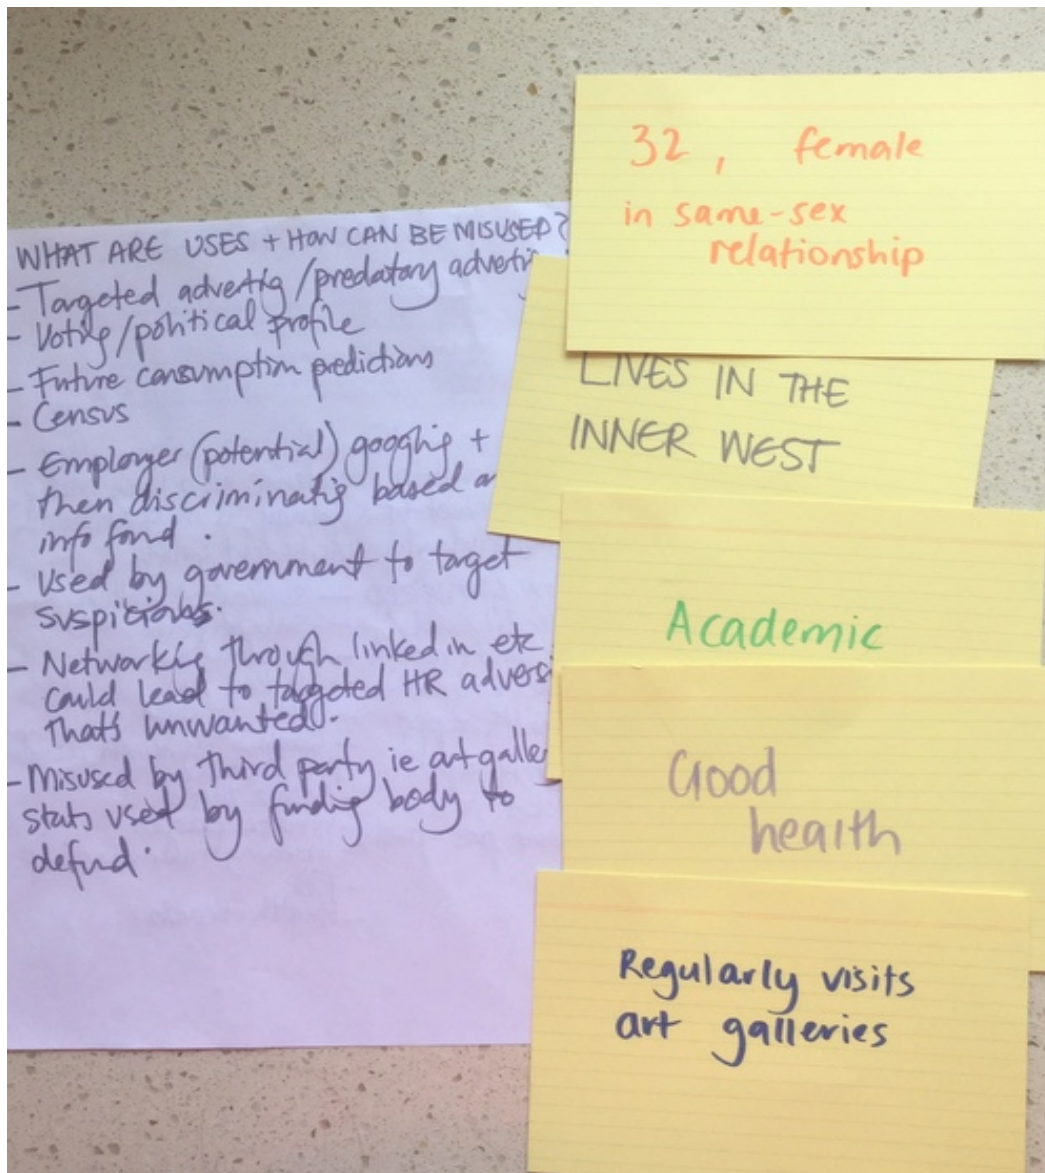 WHAT ARE USES + HOW CAN BE MISUSED?
- Targeted advertig/predatory adverti
- Voting/political profile
- Future consumption predictions
- Census
- Employer (potential) googlig +
then discriminatig based o
info fond.
- Used by government to target
suspicions.
- Networkig through linked in etc
could lead to targeted HR advers
thats unwanted.
- Misused by third party ie art galle
stats used by fundig body to
defund.
32, female
in same-sex
relationship
LIVES IN THE
INNER WEST
Academic
Good
health
Regularly visits
art galleries